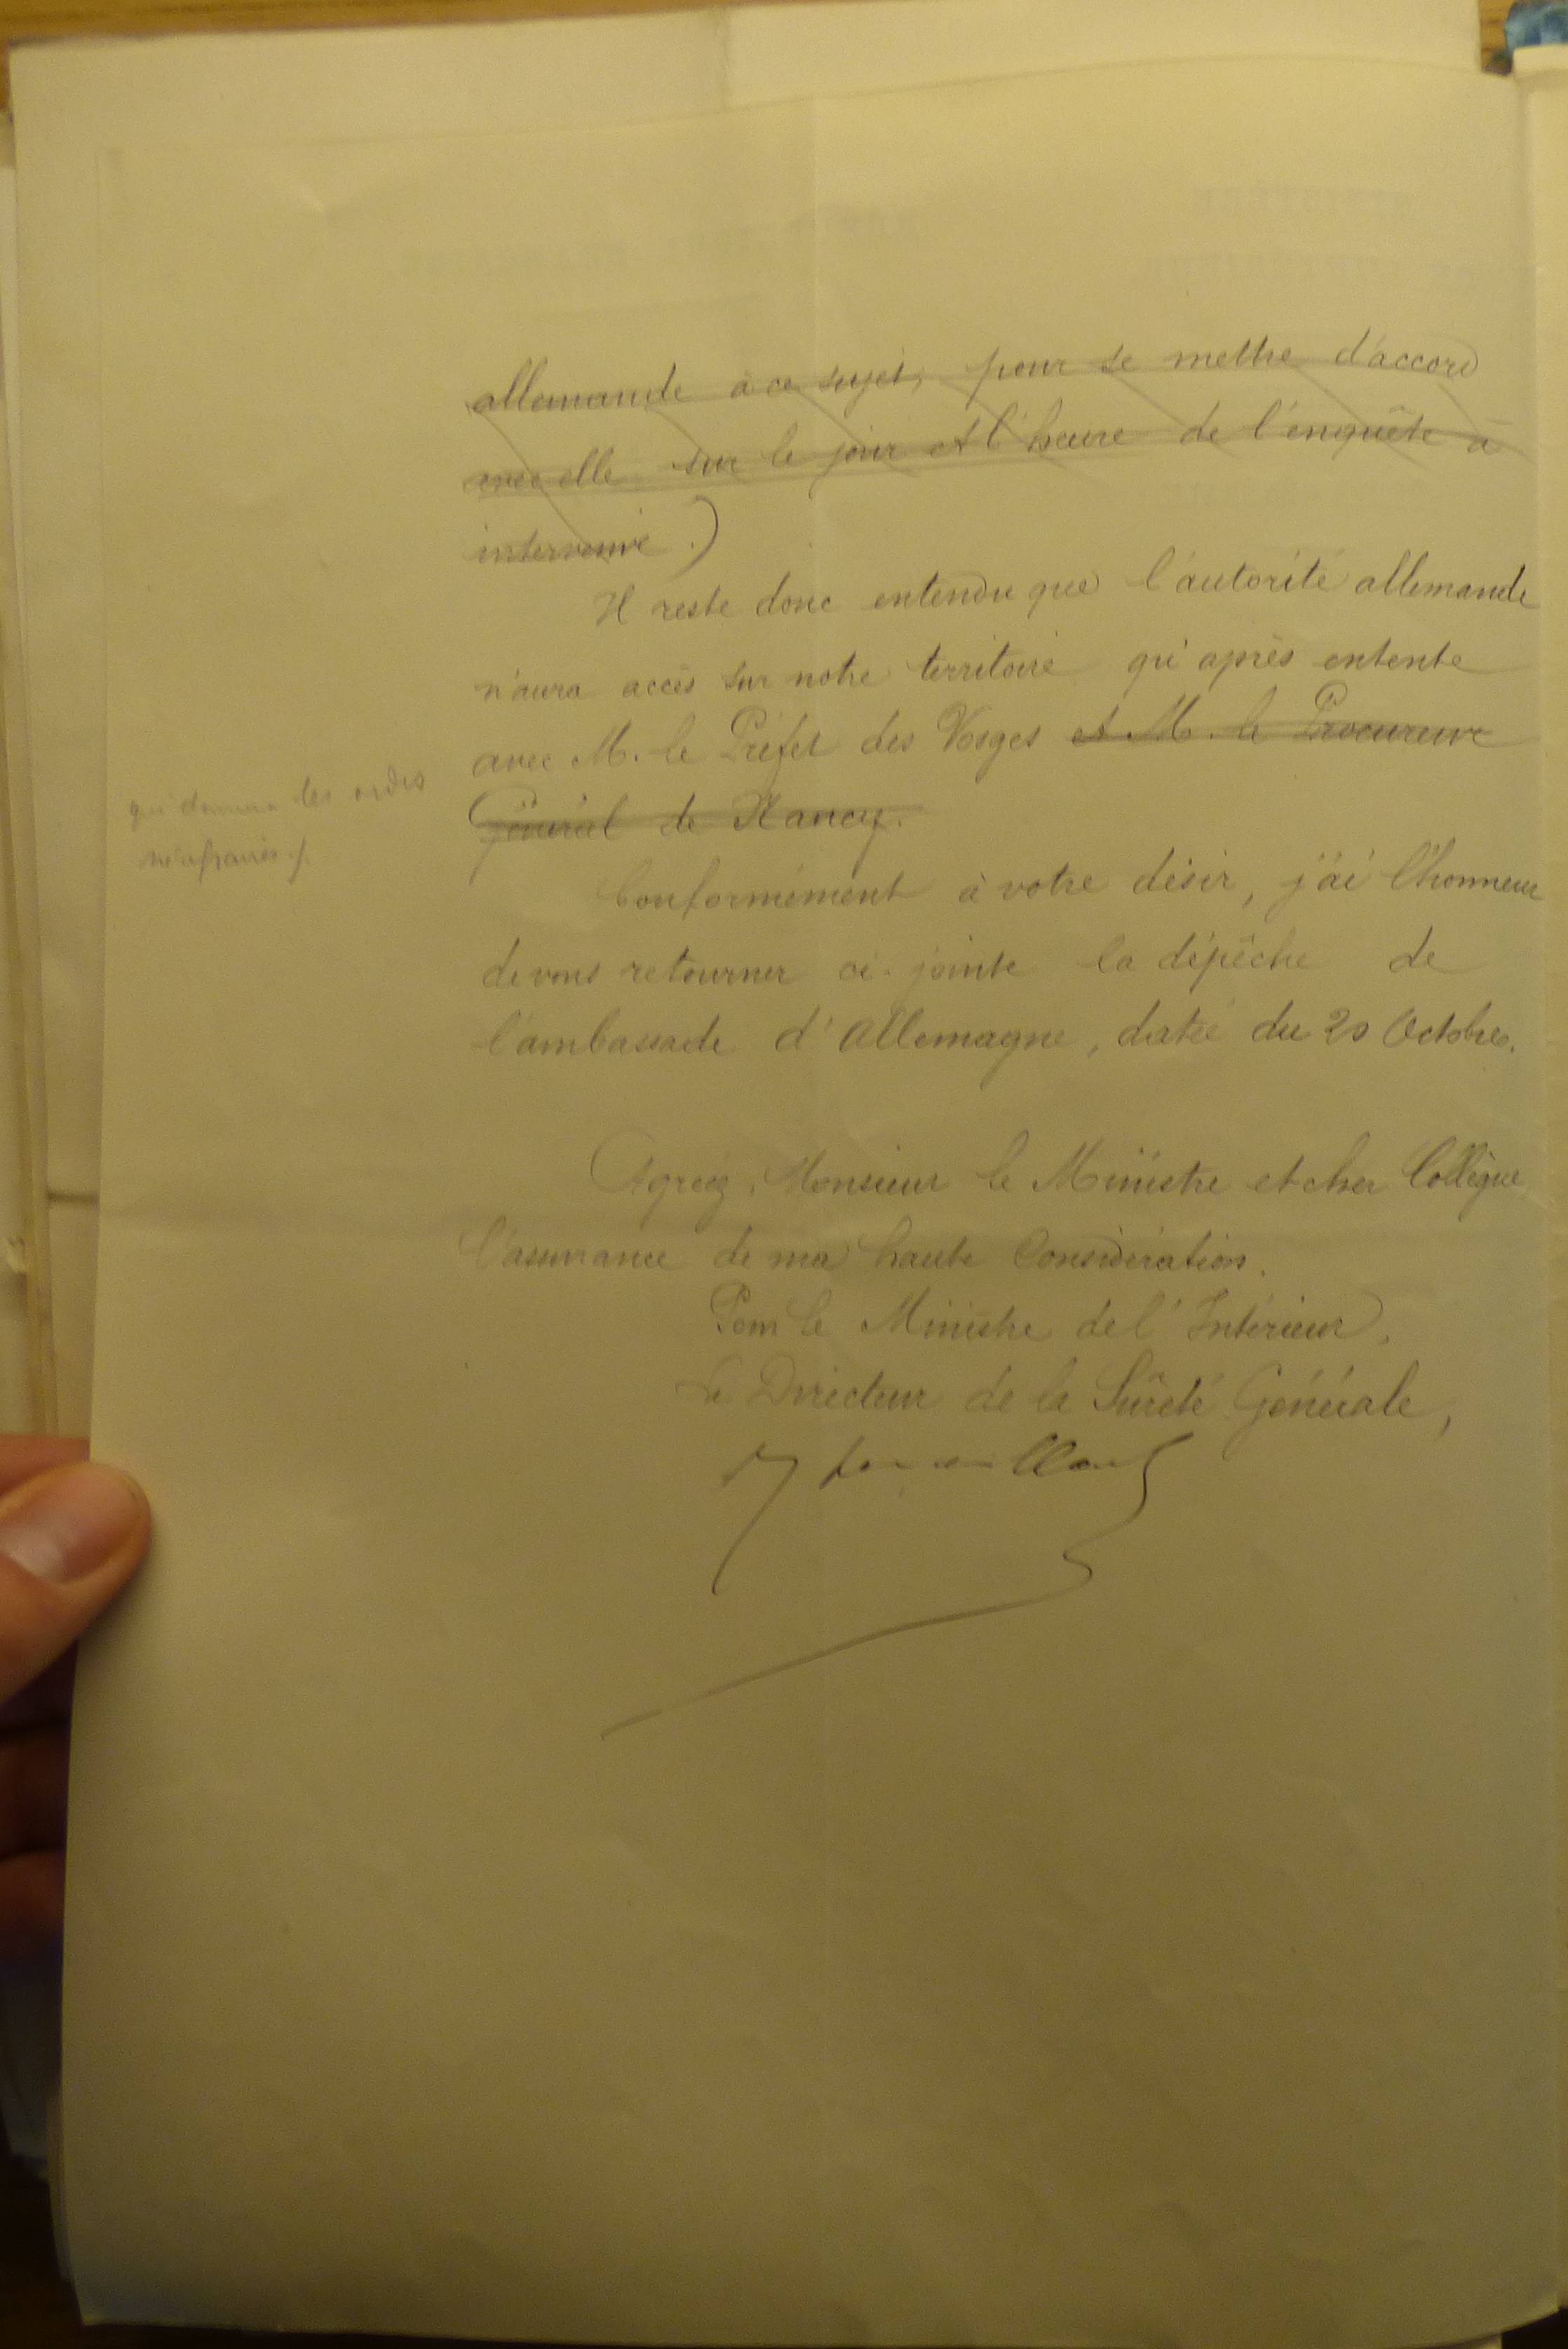 allemande à ce sujet, pour se mettre d'accord
avec elle sur le jour et l'heure de l'enquête à
intervenir.)
Il reste donc entendu que l'autorité allemande
n'aura accès sur notre territoire qu'après entente
avec M. le Préfet des Vosges et M. le Procureur
Général de Nancy.
qui donnera les ordres
nécessaires./.
Conformément à votre désir, j'ai l'honneur
de vous retourner ci-jointe la dépêche de
l'ambassade d'Allemagne, datée du 20 Octobre.
Agréez, Monsieur le Ministre et cher Collègue
l'assurance de ma haute Considération.
Pour le Ministre de l'Intérieur,
Le Directeur de la Sûreté Générale,